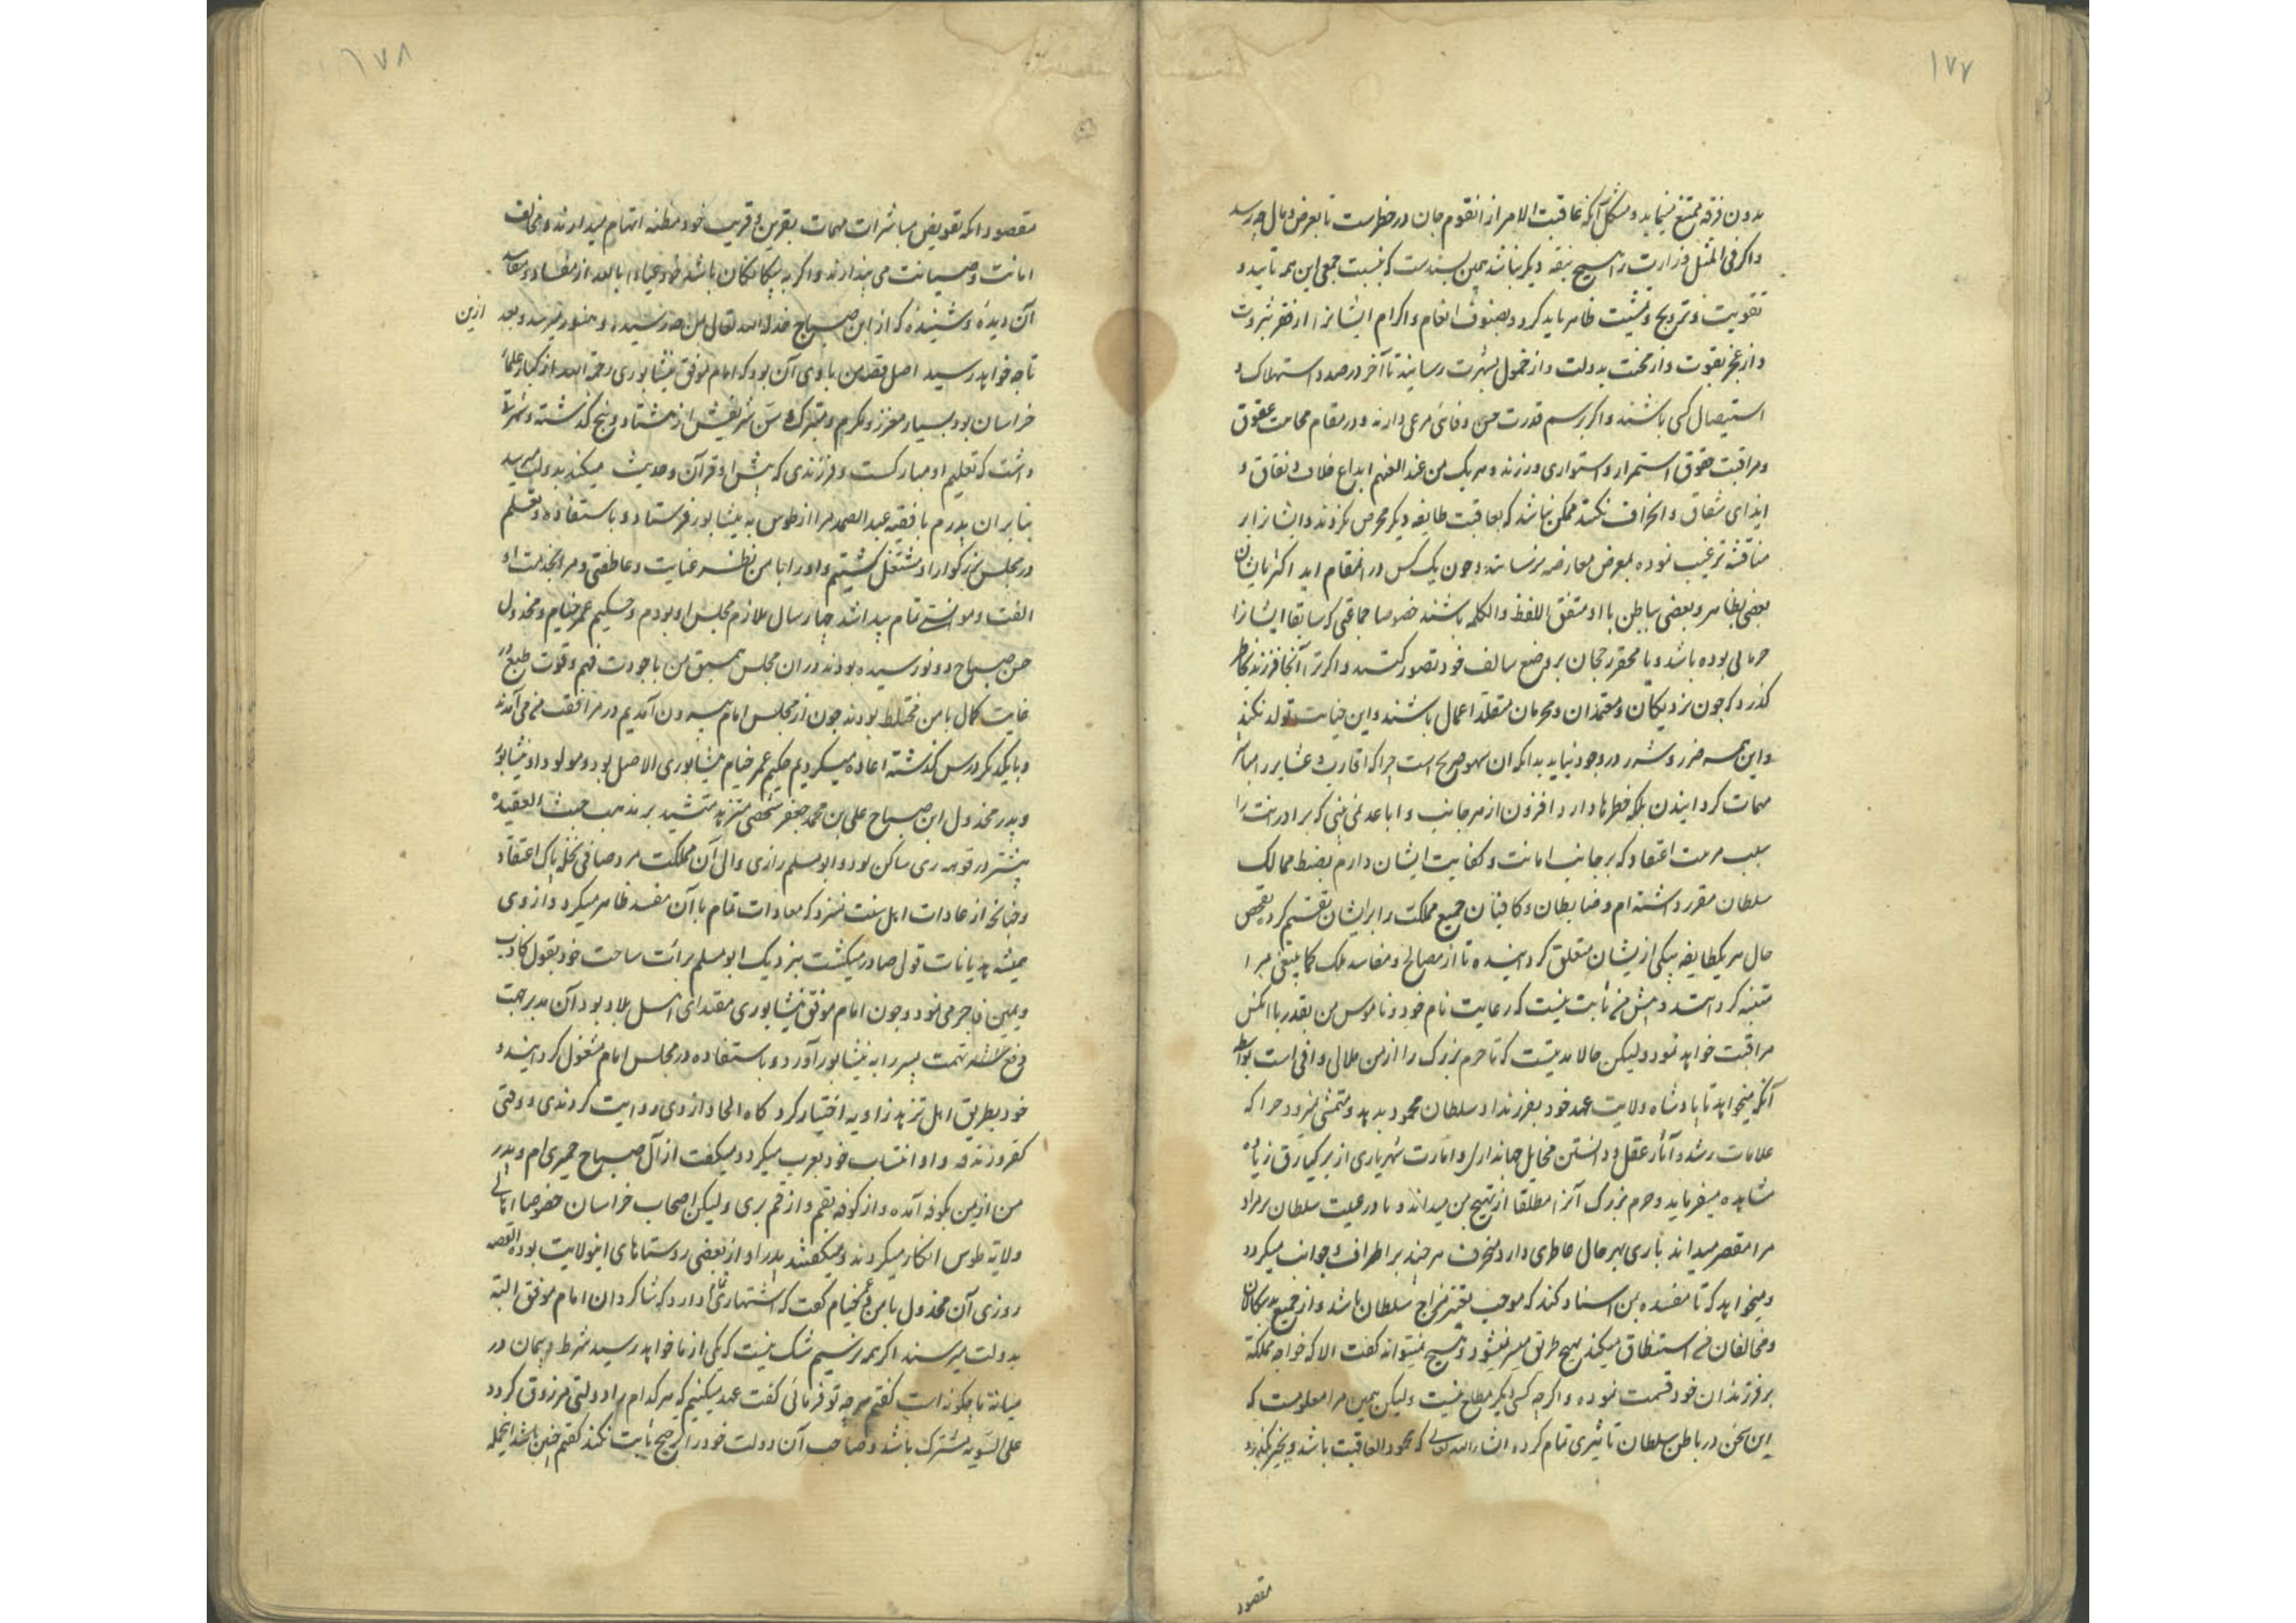 ۱۷۷
بدون فرقه ممتنع مینماید و مشکل آنکه عاقبت الامر از انقوم جان در خطرست تا بعرض و مال چه رسد
و اکر فی المثل وزارت را هیچ تبعه دیکر نباشد همین بسندست که نسبت جمعی این همه تایید و
تقویت و ترویج و تمشیت ظاهر باید کرد و بصنوف انعام و اکرام ایشانرا از فقر بثروت
و از عجز بقوت و از محنت بدولت و از خمول بشهرت رسانید تا آخر در صدد استهلاک و
استیصال کسی باشند و اکر برسم قدرت حسن وفائی مرعی دارند و در مقام محامت عقوق
و مراقبت حقوق استمرار و استواری ورزند و هر یک من عند انفسهم ابداع خلاف و نفاق و
ابدای شقاق و انحراف نکنند ممکن نباشد که بعاقبت طایفه دیکر محرض نکردند و ایشانرا بر
مناقشه ترغیب نموده بمعرض معارضه نرسانند و چون یک کس در انمقام اید اکثر یاران
بعضی بظاهر و بعضی بباطن با او متفق اللفظ و الکلمه باشند خصوصا جماعتی که سابقا ایشانرا
حرمانی بوده باشد و یا محقر رجحان بر وضع سالف خود تصور کنند و اکر ترا آنجا فرزند بخاطر
کذرد که چون نزدیکان و معتمدان و محرمان متقلد اعمال باشند و این خیانت تولد نکند
و این همه ضرر و شرر در وجود نیاید بدانکه ان سهو صریح است چرا که اقارب و عشایر را مباشر
مهمات کردانیدن بلکه خطرها دارد افزون از هر جانب و اباعد نمی بینی که برادرانت را
بسبب مرمت اعتقاد که بر جانب امانت و کفایت ایشان دارم بضبط ممالک
سلطان مقرر داشته ام و ضابطان و کافیان جمیع مملکت را بر ایشان تقسیم کرد بفحص
حال هر یکطایفه بیکی از یشان متعلق کردانیده تا از مصالح و مفاسد ملک کما ینبغی مرا
متنبه کردانند و پیش من ثابت نیست که رعایت نام خود و ناموس من بقدر ما امکن
مراقبت خواهد نمود ولیکن حالا مدتیست که تا حرم بزرک را از من ملالی وافی است بواسطه
آنکه میخواهد تا پادشاه ولایت عهد خود بفرزند او سلطان محمود بدهد و متمشی نمیرود چرا که
علامات رشد و آثار عقل و دانستن مخایل جهانداری و امارت شهریاری از برکیارق زیاده
مشاهده میفرماید و حرم بزرک آنرا مطلقا از تهییج من میداند و یا در عیبت سلطان بر مراد
مرا مقصر میداند باری بهر حال خاطری دارد منحرف هر چند بر اطراف و جوانب میکردد
و میخواهد که تا مفسده بمن اسناد کند که موجب تغییر مزاج سلطان باشد و از جمیع بیکانکان
و مخالفان من استنطاق میکند بهیچ طریق میسر نمیشود و هیچ نمیتوانند کفت الا که خواجه مملکة
بر فرزندان خود قسمت نموده و اکر چه کسی دیکر مطلع نیست ولیکن همین مرا معلومست که
این سخن در باطن سلطان تاثیری تمام کرده انشاء الله تعالی که محمود العاقبت باشد و بخیر بکذرد
مقصود
۱۷۸
مقصود انکه تفویض مباشرات مهمات بقرین و قریب خود مظنه اتهام میدارند و مخالف
امانت و صیانت می پندارند و اکر به بیکانکان باشد خود عیاذا بالله از مفاسد
آن دیده و شنیده که از ابن صباح خذله الله تعالی بمن چه رسیده و هنوز میرسد و بعد ازین
تا چه خواهد رسید اصل قصه من با وی آن بود که امام موفق نیشابوری رحمه الله از کبار علمای
خراسان بود بسیار معزز و مکرم و متبرک سن شریفش از هشتاد و پنج کذشته و شهرت
داشت که تعلیم او مبارکست و فرزندی که پیش او قرآن و حدیث میکند بدولت میرسد
بنابران پدرم با فقیه عبد الصمد مرا از طوس به نیشابور فرستاد و باستفاده و تعلم
در مجلس بزرکوار او مشتغل کشتیم و او را با من نظر عنایت و عاطفتی و مرا بخدمت او
الفت و موانستی تمام پیدا شد چهار سال ملازم مجلس او بودم و حکیم عمر خیام و مخذول
حسن صباح دو نو رسیده بودند در ان مجلس همسبق من با جودت فهم و قوت طبع در
غایت کمال با من مختلط بودند چون از مجلس امام بیرون آمدیم در مرافقت من می آمدند
و با یکدیکر درس کذشته اعاده میکردیم حکیم عمر خیام نیشابوری الاصل بود و مولود او نیشابور
و پدر مخذول ابن صباح علی بن محمد جعفر شخصی متزهد متشید بر مذهب خبیث العقیده
بیشتر در قوهه ری ساکن بود و ابو مسلم رازی والی آن مملکت مرد صافی نحله پاک اعتقاد
و چنانچه از عادات اهل سنت سزد که معادات تمام با آن مفسد ظاهر میکرد و از وی
همیشه هذیانات قول صادر میکشت بنزدیک ابو مسلم برائت ساحت خود بقول کاذب
و یمین فاجر می نمود و چون امام موفق نیشابوری مقتدای اهل بلاد بود آن مدبر جهت
دفع تهمت پسر را به نیشابور آورد و باستفاده در مجلس امام مشغول کردانید و
خود بطریق اهل تزهد زاویه اختیار کرد کاه الحاد از وی روایت کردندی و وقتی
کفر و زندقه و او انتساب خود بعرب میکرد و میکفت از آل صباح حمیری ام و پدر
من از یمن بکوفه آمده و از کوفه بقم و از قم بری ولیکن اصحاب خراسان خصوصا اهالی
ولایة طوس انکار میکردند و میکفتند پدر او از بعضی روستاهای اینولایت بوده القصه
روزی آن مخذول با من و عمر خیام کفت که اشتهاری تمام دارد که شاکردان امام موفق البته
بدولت میرسند اکر همه نرسیم شک نیست که یکی از ما خواهد رسید شرط و پیمان در
میانه ما چکونه است کفتم هر چه تو فرمائی کفت عهد میکنیم که هر کدام را دولتی مرزوق کردد
علی السویه مشترک باشد و صاحب آن دولت خود را ترجیح ثابت نکند کفتم چنین باشد انجمله